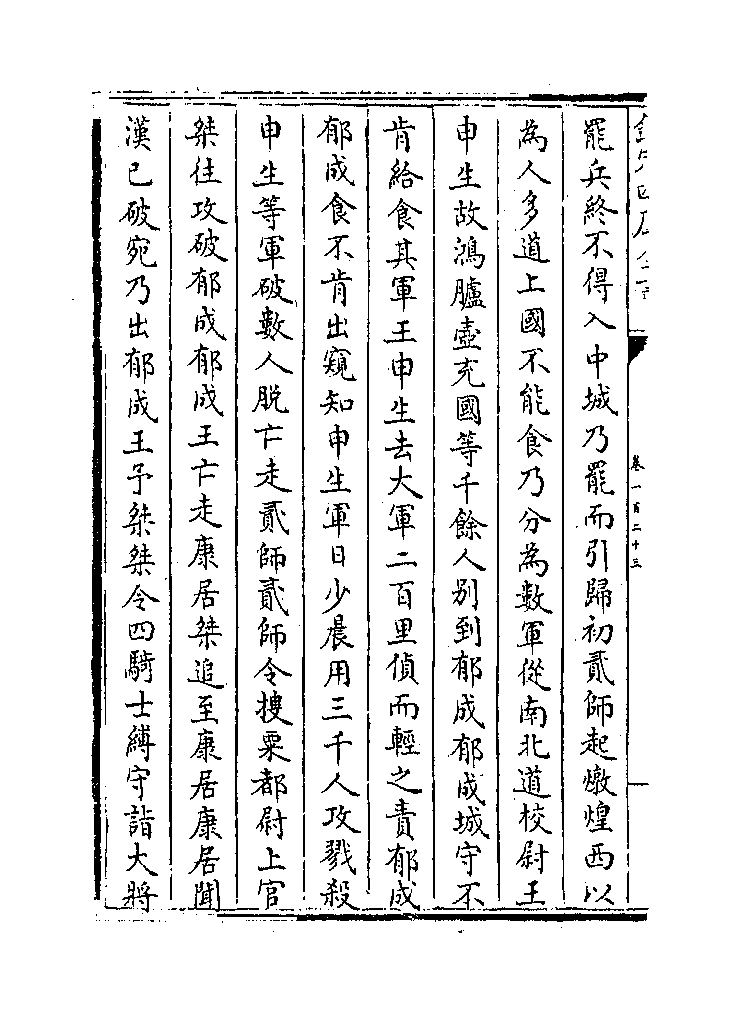 卷一百二十三
罷兵終不得入中城乃罷而引歸初貳師起燉煌西以
為人多道上國不能食乃分為數軍從南北道校尉王
申生故鴻臚壺充國等千餘人别到郁成郁成城守不
肯給食其軍王申生去大軍二百里偵而輕之責郁成
郁成食不肯出窺知申生軍日少晨用三千人攻戮殺
申生等軍破數人脱亡走貳師貳師令搜粟都尉上官
桀往攻破郁成郁成王亡走康居桀追至康居康居聞
漢已破宛乃出郁成王予桀桀令四騎士縛守詣大將